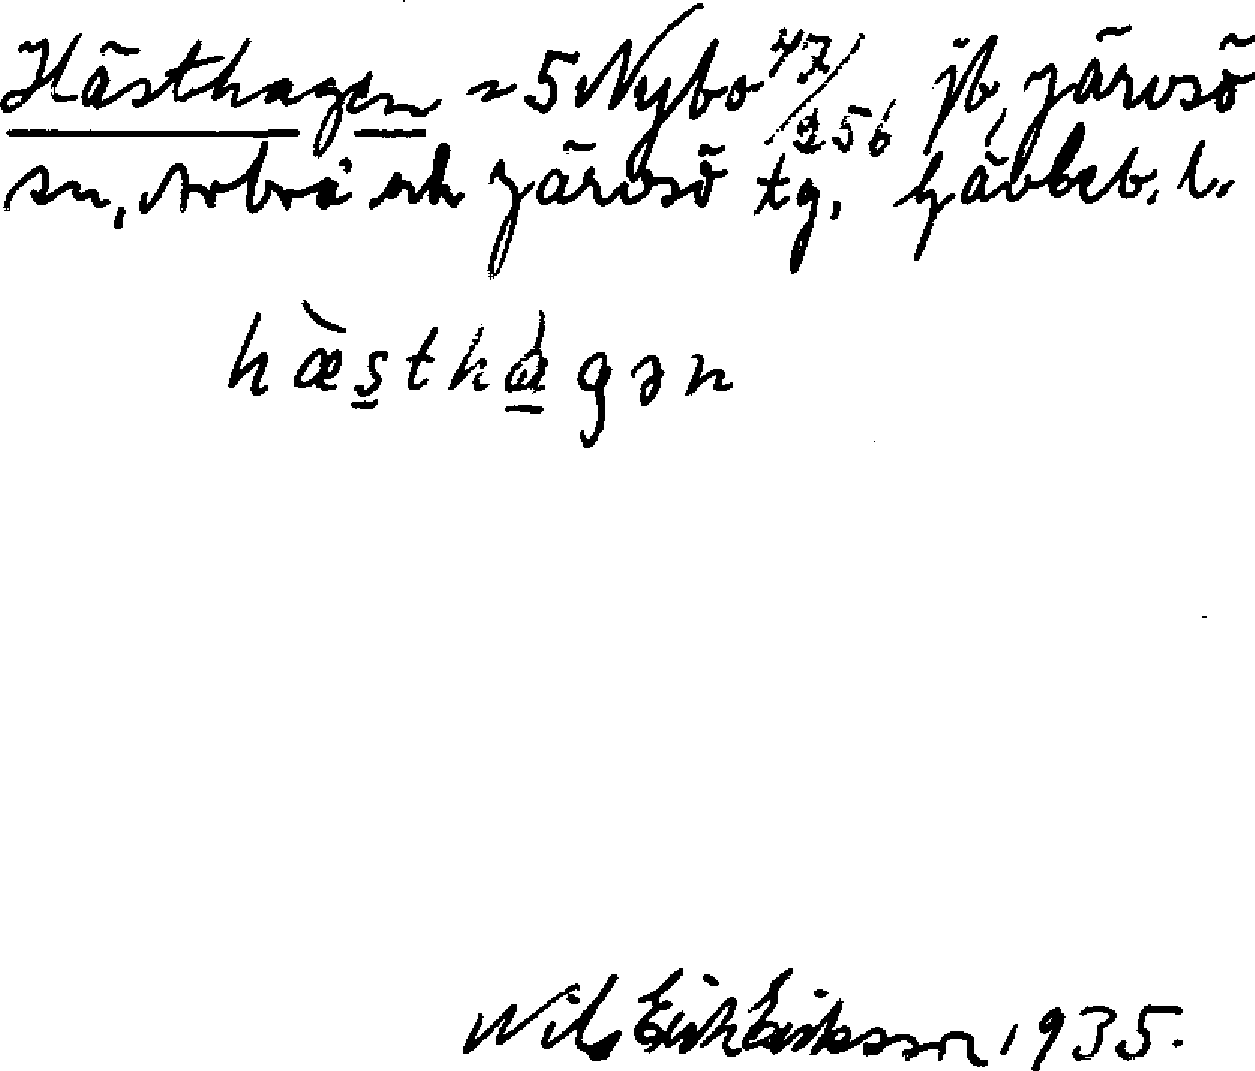 Hästhagen = 5 Nybo 47/256 jb, Järvsö
sn, Arbrå och Järvsö tg, Gävleb. l.
hæ̀s̱thɑ̱̀gən
Nils Erik Eriksson 1935.